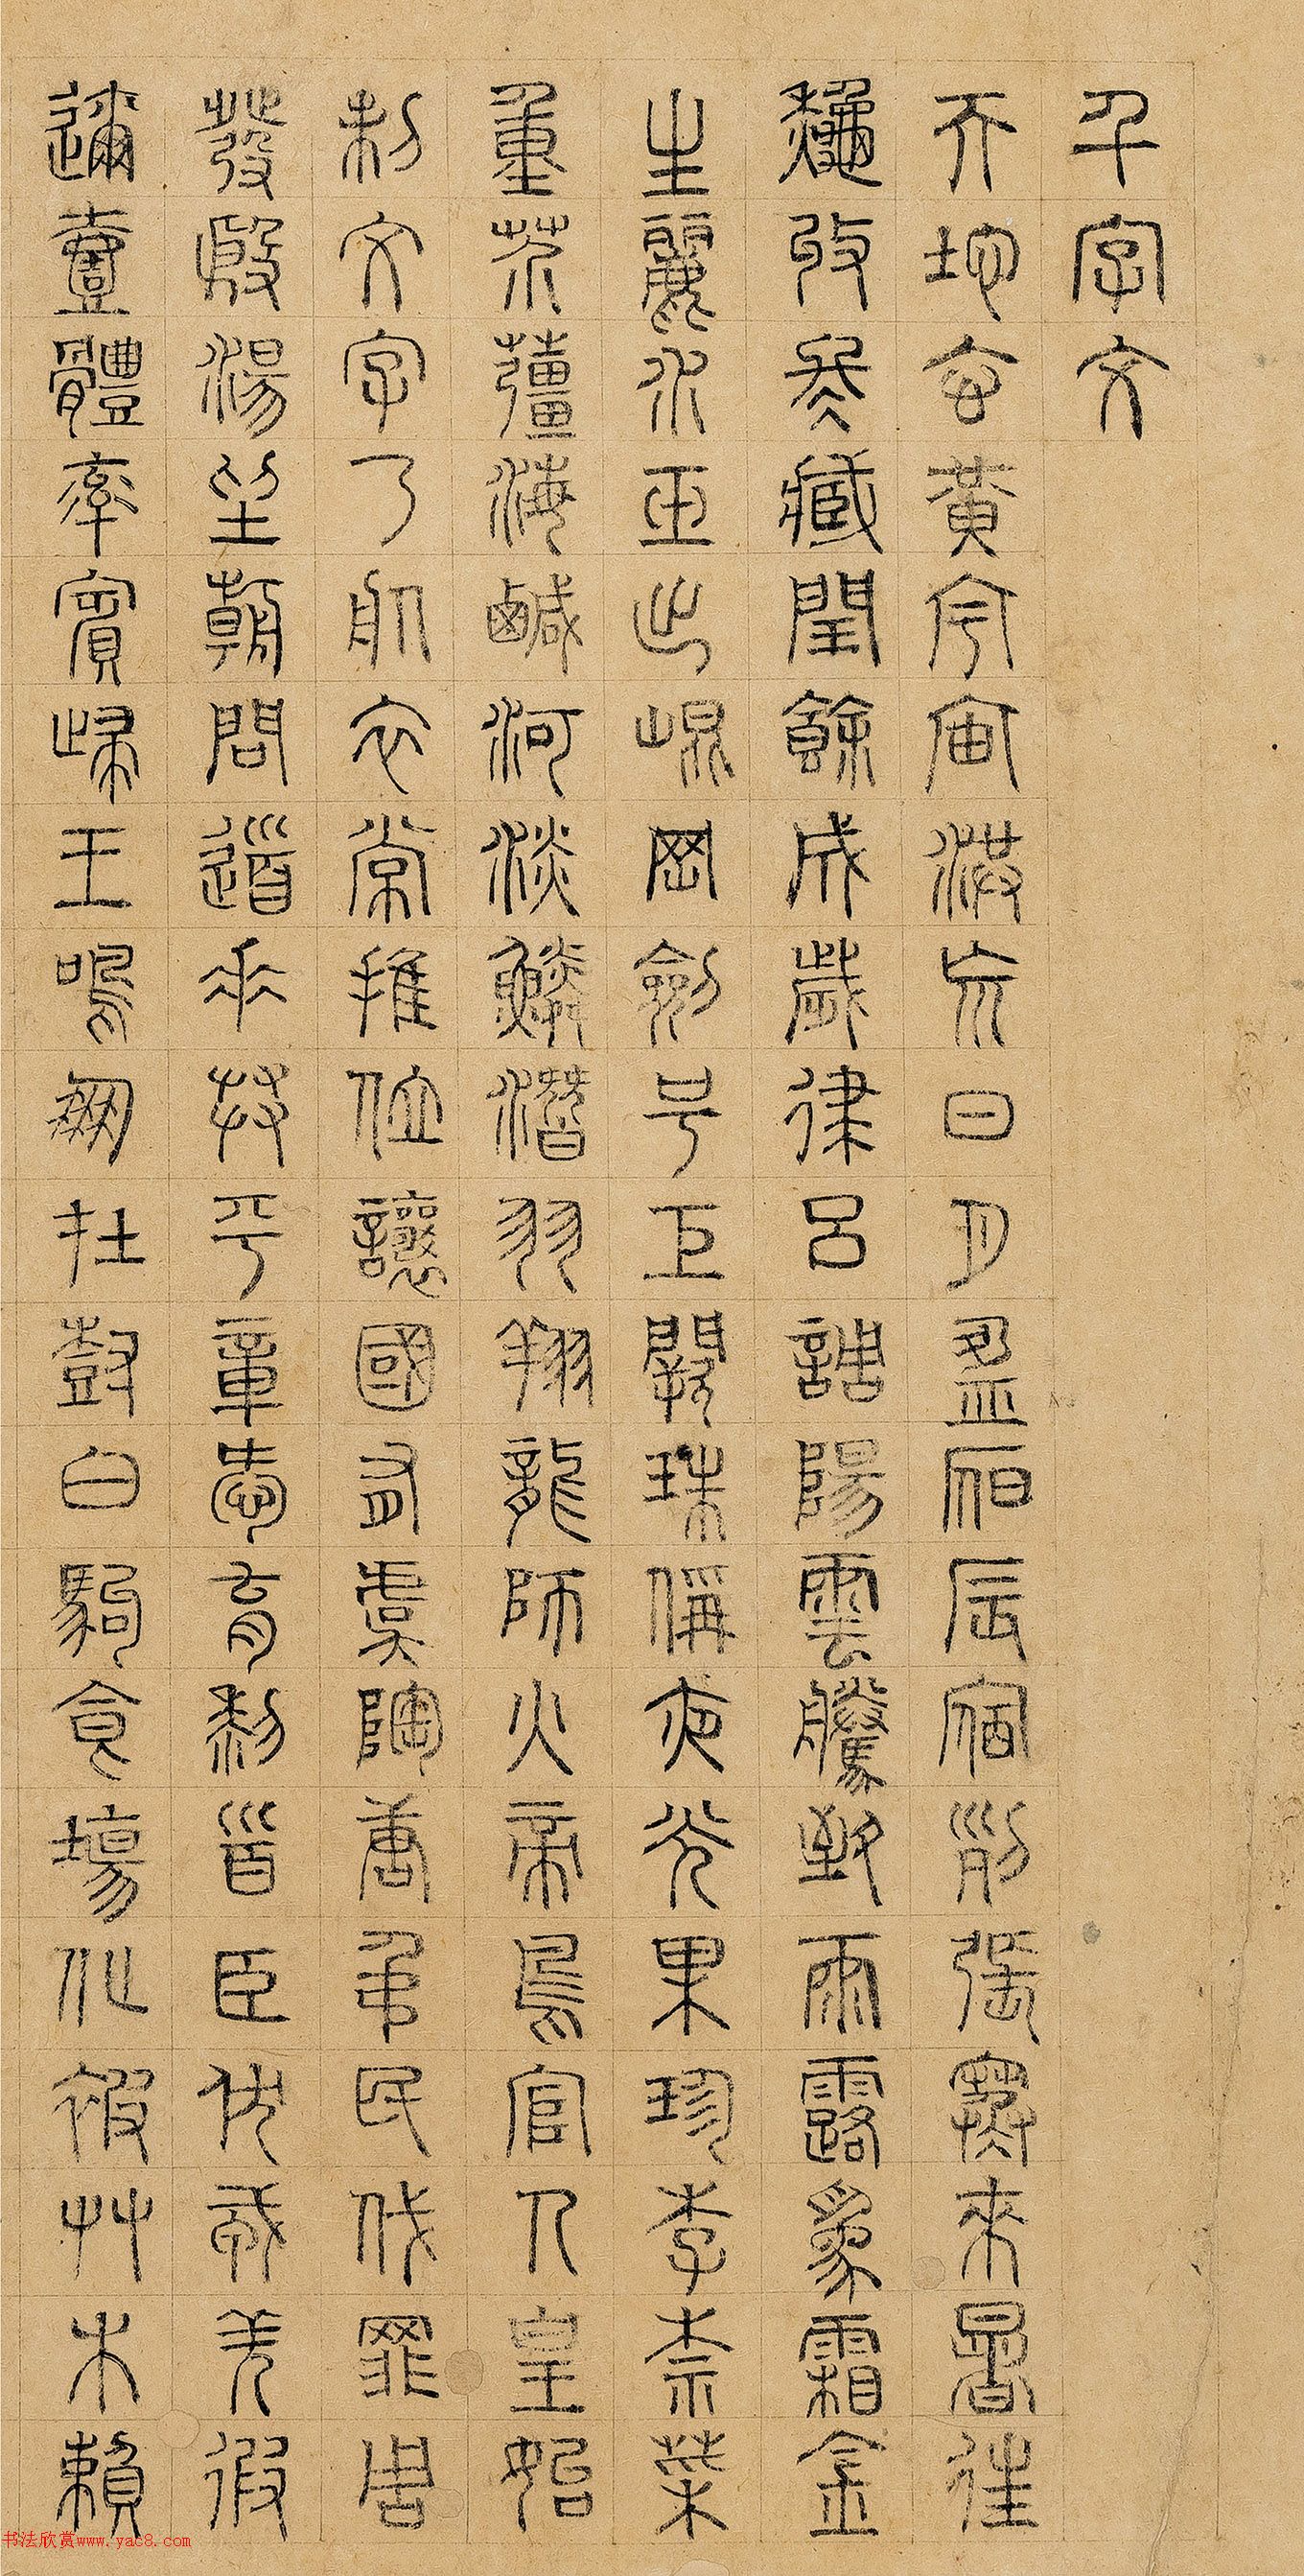 千字文
天地玄黃宇宙洪荒日月盈昃辰宿列張寒來暑往
秋收冬藏閏餘成歲律呂調陽雲騰致雨露為霜金
生麗水玉出崐岡劍号巨闕珠稱夜光果珍李柰菜
重芥薑海鹹河淡鱗潛羽翔龍師火帝鳥官人皇始
制文字乃服衣常推位讓國有虞陶唐弔民伐罪周
發殷湯坐朝問道垂拱平章愛育黎首臣伏戎羌遐
邇壹體率賓歸王鳴鳳在樹白駒食場化被草木賴
书法欣赏www.yac8.com